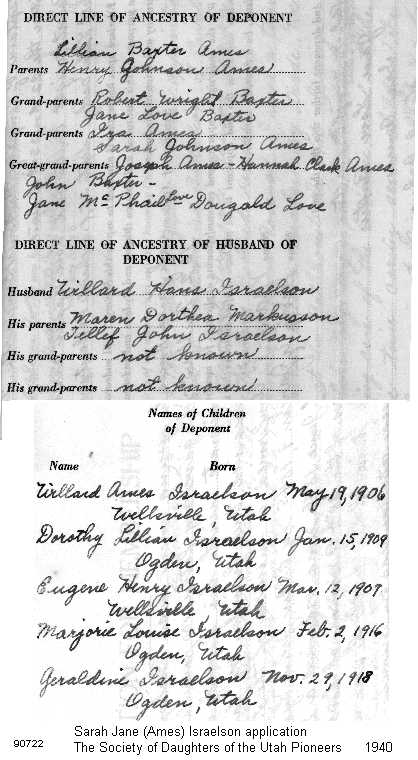 DIRECT LINE OF ANCESTRY OF DEPONENT
Lillian Baxter Ames
Parents Henry Johnson Ames
Grand-parents Robert Wright Baxter
Jane Love Baxter
Grand-parents Ira Ames
Sarah Johnson Ames
Great-grand-parents Joseph Ames - Hannah Clark Ames
John Baxter -
Jane McPhail Love - Dougald Love
DIRECT LINE OF ANCESTRY OF HUSBAND OF
DEPONENT
Husband Willard Hans Israelson
His parents Maren Dorthea Markusson
Tellef John Israelson
His grand-parents not known
His grand-parents not known
Names of Children
of Deponent
Name Born
Willard Ames Israelson May 19, 1906
Wellsville, Utah
Dorothy Lillian Israelson Jan. 15, 1909
Ogden, Utah
Eugene Henry Israelson Mar. 12, 1907
Wellsville, Utah
Marjorie Louise Israelson Feb. 2, 1916
Ogden, Utah
Geraldine Israelson Nov. 29, 1918
Ogden, Utah
Sarah Jane (Ames) Israelson application
90722 The Society of Daughters of the Utah Pioneers 1940